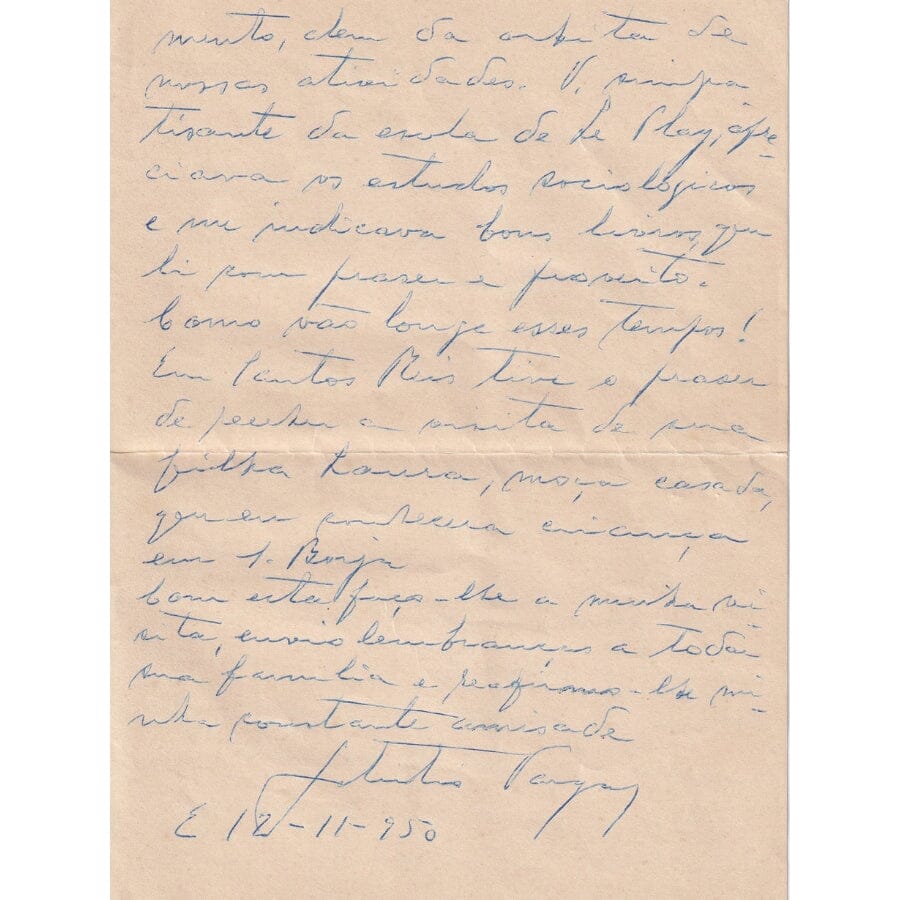 mento, alem da orbita de
nossas atividades. V. simpa
tisante da escola de Le Play, apre-
ciava os estudos sociologicos
e me indicava bons livros, que
li com praser e proveito.
Como vão longe esses tempos!
Em Santos Reis tive o praser
de receber a visita de sua
filha Laura, moça casada,
quem conhecera criança
em S. Borja
Com esta faço-lhe a minha vi-
sita, envio lembranças a toda
sua familia e reafirmo-lhe mi-
nha constante amisade
Getulio Vargas
E 12-11-950